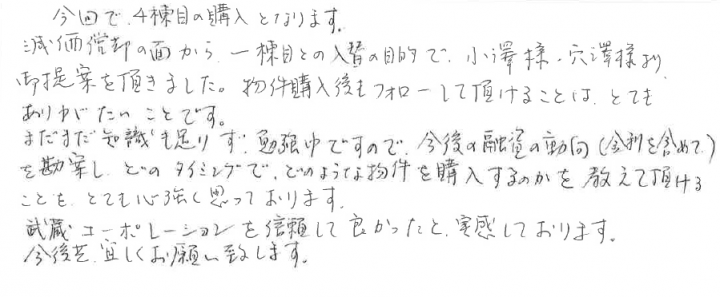 今回で、4棟目の購入となります。
減価償却の面から、一棟目との入替の目的で、小澤様・穴澤様より
御提案を頂きました。物件購入後もフォローして頂けることは、とても
ありがたいことです。
まだまだ知識も足りず、勉強中ですので、今後の融資の動向(金利を含めて)
を勘案し、どのタイミングで、どのような物件を購入するのかを教えて頂ける
ことも、とても心強く思っております。
武蔵コーポレーションを信頼して良かったと、実感しております。
今後共、宜しくお願い致します。